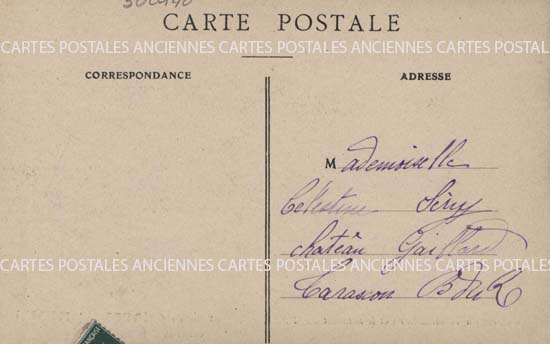 CARTE POSTALE
CARTES POSTALES ANCIENNES CARTES POSTALES ANCIENNES CARTES POSTALES
CORRESPONDANCE
ADRESSE
Mademoiselle
Célestine Séry
château Gaillard
CARTES POSTALES ANCIENNES CARTES POSTALES ANCIENNES CARTES POSTALES
Tarascon B du R